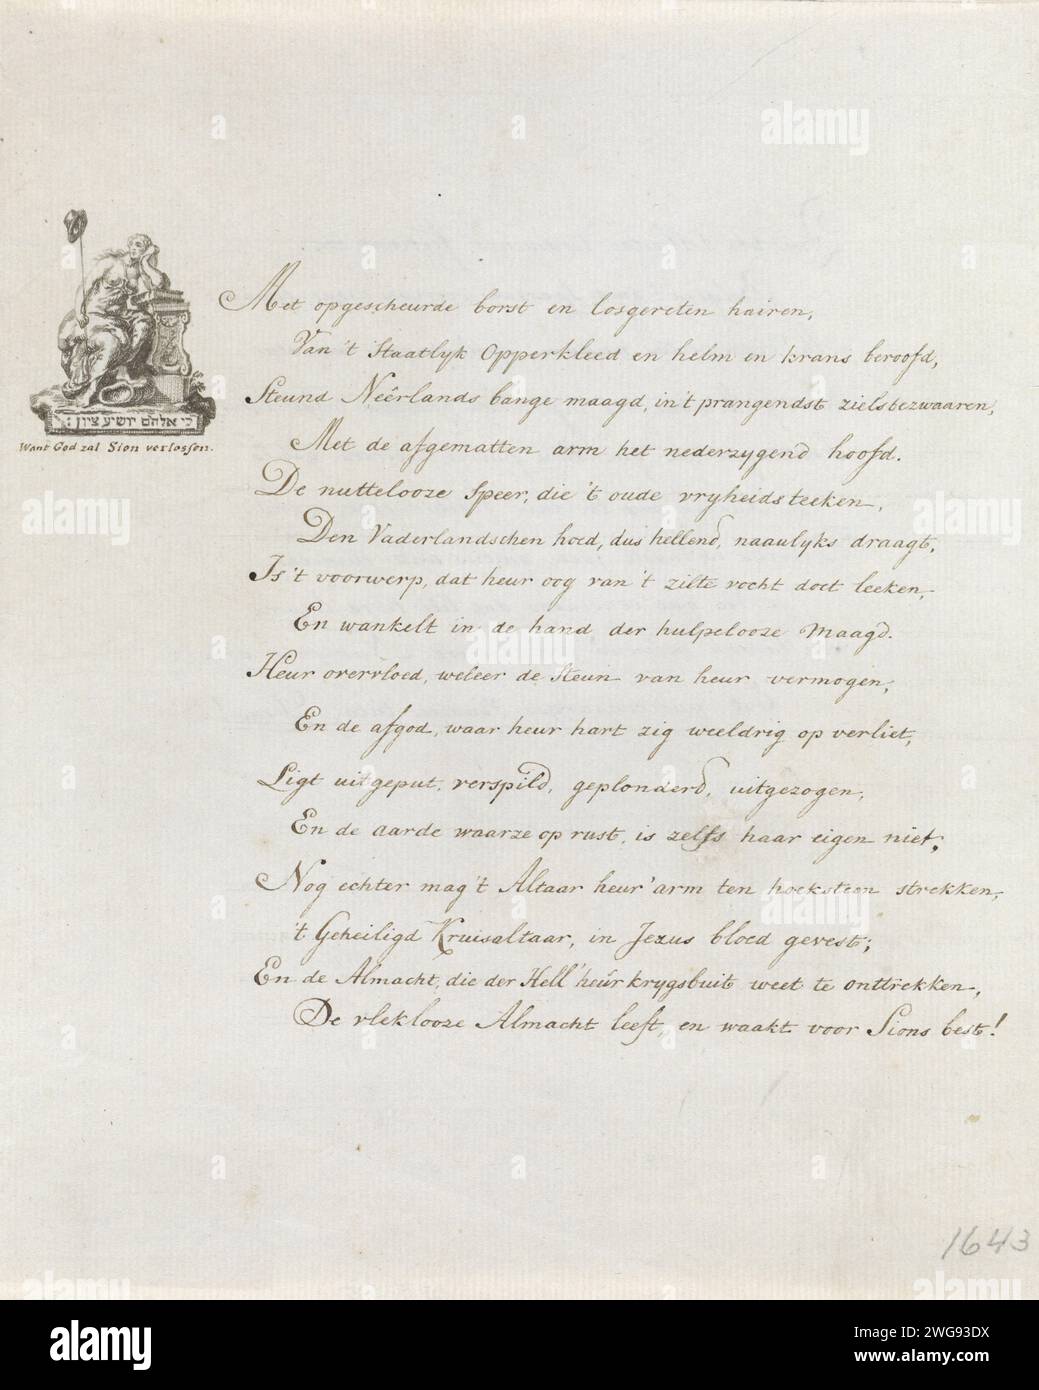 Met opgescheurde borst en losgereten hairen,
Van 't Staatlyk Opperkleed en helm en krans beroofd,
Steund Neêrlands bange maagd, in 't prangendst zielsbezwaaren,
Met de afgematten arm het nederzygend hoofd.
De nuttelooze Speer, die 't oude vryheidsteeken,
Den Vaderlandschen hoed, dus hellend, naaulyks draagt,
Is 't voorwerp, dat heur oog van 't zilte vocht doet leeken,
En wankelt in de hand der hulpelooze Maagd.
Heur overvloed, weleer de Steun van heur vermogen,
En de afgod, waar heur hart zig weeldrig op verliet,
Ligt uitgeput, verspild, geplonderd, uitgezogen,
En de aarde waarze op rust, is zelfs haar eigen niet;
Nog echter mag 't Altaar heur' arm ten hoeksteen strekken,
't Geheiligd Kruisaltaar, in Jezus bloed gevest;
En de Almacht, die der Hell' heur krygsbuit weet te onttrekken,
De vleklooze Almacht leeft, en waakt voor Sions best!
כי אלהם יושיע ציון:
Want God zal Sion verlossen.
1643
alamy
Image ID: 2WG93DX
www.alamy.com